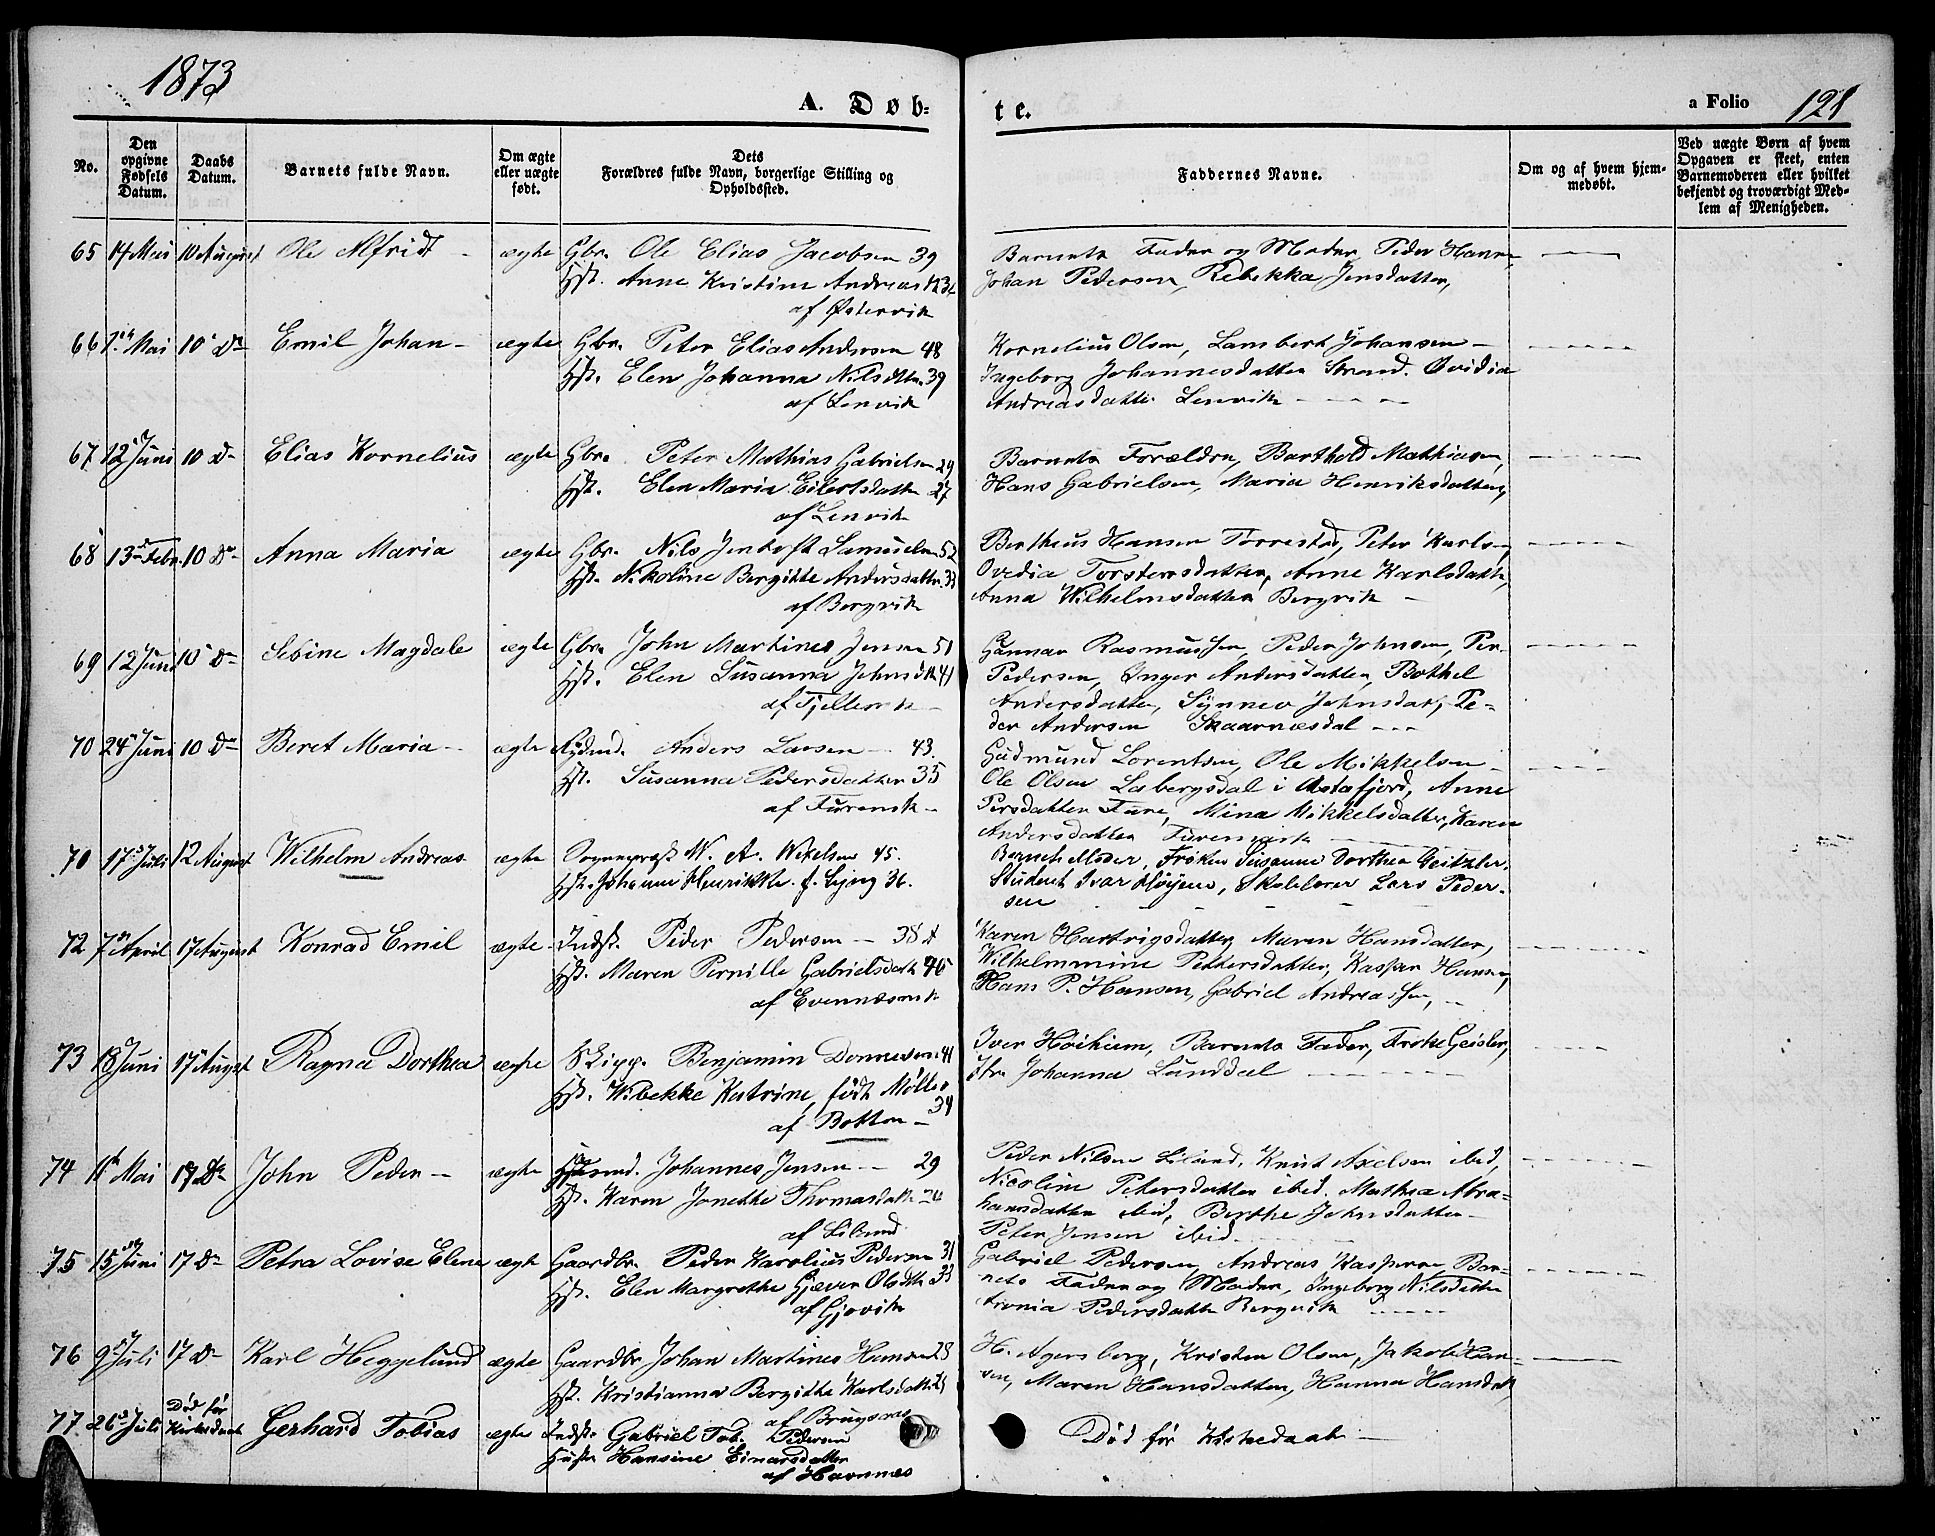 1873
A. Døb-
te.
a Folio 128
No.
Den opgivne Fødsels Datum.
Daabs Datum.
Barnets fulde Navn.
Om ægte eller uægte født.
Dets Forældres fulde Navn, borgerlige Stilling og Opholdssted.
Faddernes Navne.
Om og af hvem hjemmedøbt.
Ved uægte Børn af hvem Opgaven er skeet, enten Barnemoderen eller hvilket bekjendt og troværdigt Medlem af Menigheden.
65 14 Mai 10 August Ole Alfridt - ægte Gbr. Ole Elias Jacobsen 39
Hst. Anne Kristine Andreasd
af Østervik
Barnets Fader og Moder, Peder Hansen,
Johan Pedersen, Rebekka Jensdatter,
66 Mai 10 Do Emil Johan - ægte Gbr. Peter Elias Andersen 48
Hst. Elen Johanna Nilsdttr. 39
af Lenvik
Kornelius Olsen, Lambert Johansen -
Ingeborg Johannesdatter Strand. Ovidia
Andreasdatter Lenvik - - - -
67 12 Juni 10 Do Elias Kornelius ægte Gbr. Peter Mathias Gabrielsen 29
Hst. Elen Maria Eilertsdatter 27
af Lenvik
Barnets Forældre, Barthold Mathiasen,
Hans Gabrielsen, Maria Henriksdatter,
68 13 Febr. 10 Do Anna Maria ægte Gbr. Nils Jentoft Samuelsen 52
Hst. Nikoline Bergitte Andersdatter 33
af Bergvik
Bertheus Hansen Forrestad, Peter Karlsen,
Ovedia Torstensdatter, Anne Karlsdatter,
Anna Wilhelmsdatter Bergvik -
69 12 Juni 10 Do Sebine Magdale ægte Gbr. John Martines Jensen 51
Hst. Elen Susanna Johnsdtr 41
af
Gunnar Rasmussen, Peder Johnsen, Per
Pedersen, Inger Andersdatter, Bothel
Andersdatter, Synnev Johnsdat, Pe-
der Andersen Skaarnæsdal - - -
70 24 Juni 10 Do Beret Maria - ægte Anders Larsen - 43.
Hst. Susanna Pedersdatter 35
af
Gudmund Lorentsen, Ole Mikkelsen -
Ole Olsen Labergsdal i Astafjord, Anne
Persdatter Fure, Mina Mikkelsdatter, Karen
Andersdatter
70 17 Juli 12 August Wilhelm Andreas ægte Sognepræst W. A. Wexelsen 45.
Hst. Johanne Henrikke f. 36.
Barnets Moder, Frøken Susanne Dorthea Geitzler,
Student Ivar Høyem, Skolelærer Lars Peder-
sen
72 7 April 17 August Konrad Emil ægte - Indst. Peder Pedersen - 38
Hst. Maren Pernille Gabrielsdatt 46
af
Karen Hartvigsdatter, Maren Hansdatter,
Wilhelmmine Pettersdatter, Kasper Hansen,
Hans P. Hansen, Gabriel Andreassen, -
73 18 Juni 17 August Ragna Dorthea ægte Skipp. Benjamin Dønnesen 41
Hst. Wibekke Katrine, født Møller
34
af Botton -
Iver Høihiem, Barnets Fader, Frøke Geisler,
Johanna Lunddal
74 Mai 17 Do John Peder - ægte Johannes Jensen - 29
Hst. Karen Jonette Thomasdatt
af Liland
Peder Nilsen Liland, Knut Axelsen ibid,
Nicoline Petersdatter ibid. Mathea Abra-
hamsdatter ibid, Berthe Johnsdatter -
Peter Jensen ibid.
75 15 Juni 17 Do Petra Lovise Elene ægte Gaardbr. Peder Karolius Pedersen 31
Hst. Elen Margrethe Gjæver Olsdtr 33
af Gjøvik
Gabriel Pedersen, Andreas Kaspersen, Bar-
nets Fader og Moder, Ingeborg Nilsdatter
Pedersdatter Bergvik
76 9 Juli 17 Do Karl Heggelund ægte Gaardbr Johan Martines Hansen
Hst. Kristianna Bergitte Karlsdatt
af
H. Agersborg, Kristen Olsen, Jakob Han-
sen, Maren Hansdatter, Hanna Hansdatt
77. 26 Juli Død før Kirkedaab Gerhard Tobias ægte Indst. Gabriel Tob. Pedersen
Hustr Hansine Einarsdatter
af Havnnæs
Død før Kirkedaab -